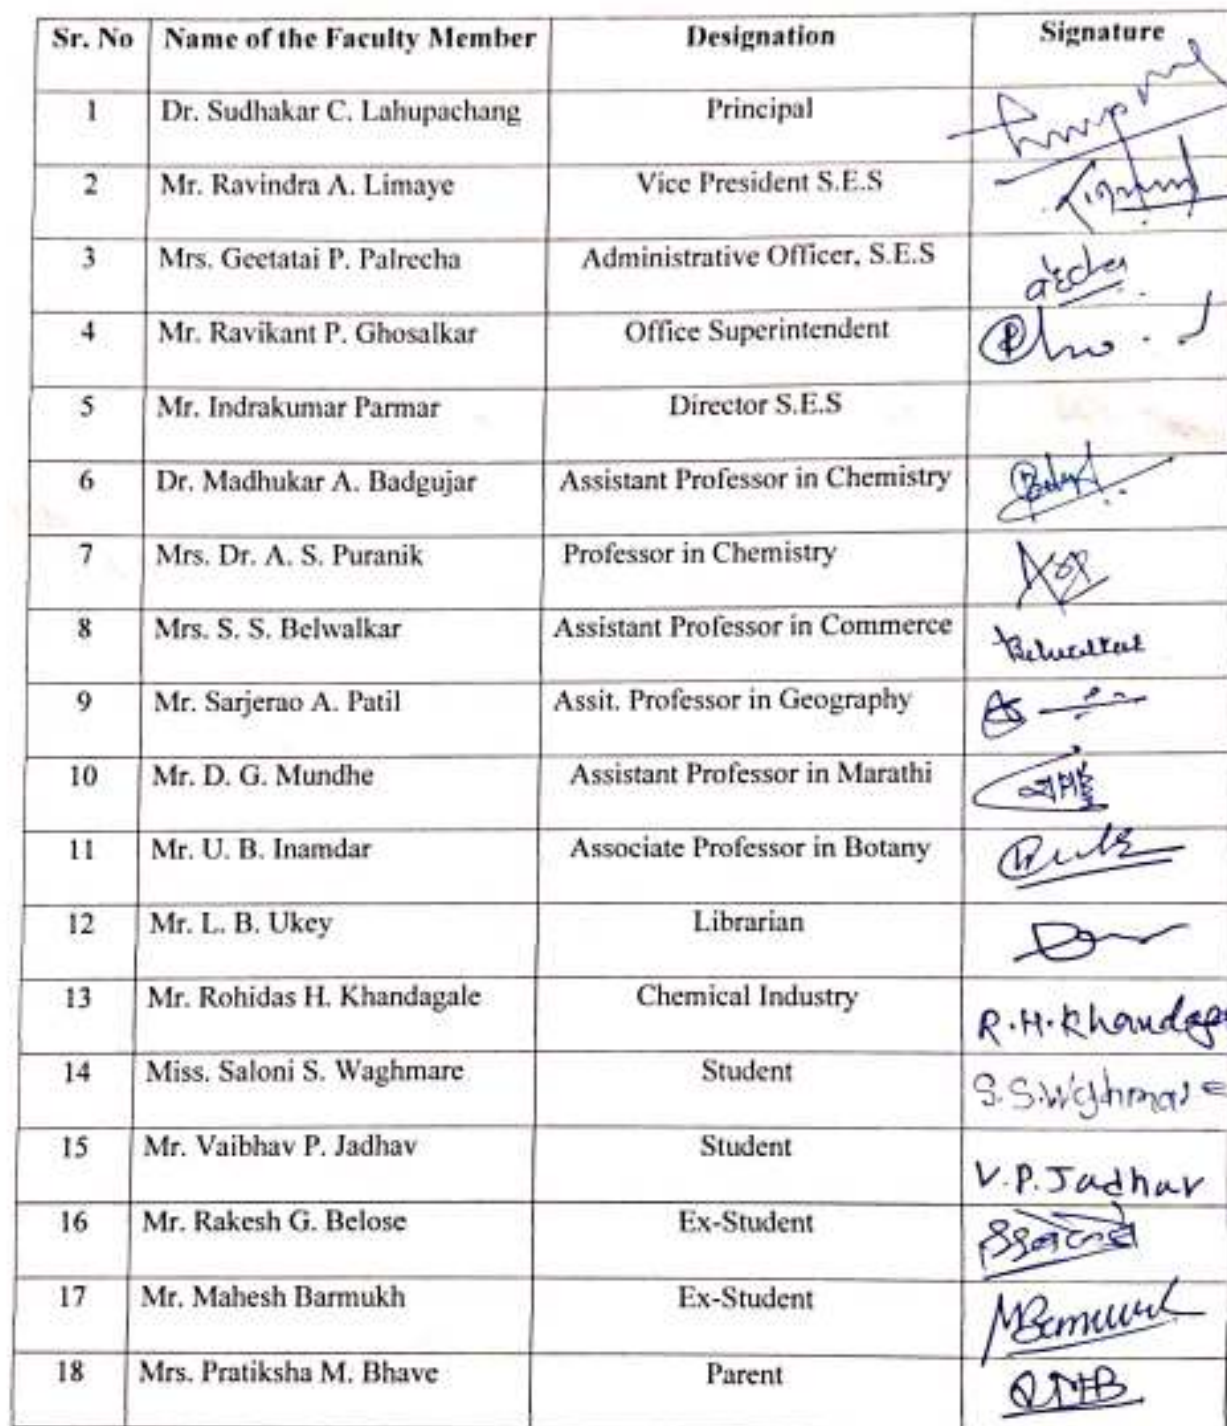 Sr. No Name of the Faculty Member Designation Signature
1 Dr. Sudhakar C. Lahupachang Principal
2 Mr. Ravindra A. Limaye Vice President S.E.S
3 Mrs. Geetatai P. Palrecha Administrative Officer, S.E.S
4 Mr. Ravikant P. Ghosalkar Office Superintendent
5 Mr. Indrakumar Parmar Director S.E.S
6 Dr. Madhukar A. Badgujar Assistant Professor in Chemistry
7 Mrs. Dr. A. S. Puranik Professor in Chemistry
8 Mrs. S. S. Belwalkar Assistant Professor in Commerce Belwalkar
9 Mr. Sarjerao A. Patil Assit. Professor in Geography
10 Mr. D. G. Mundhe Assistant Professor in Marathi
11 Mr. U. B. Inamdar Associate Professor in Botany
12 Mr. L. B. Ukey Librarian
13 Mr. Rohidas H. Khandagale Chemical Industry R.H.Khandag
14 Miss. Saloni S. Waghmare Student
15 Mr. Vaibhav P. Jadhav Student V.P.Jadhav
16 Mr. Rakesh G. Belose Ex-Student
17 Mr. Mahesh Barmukh Ex-Student
18 Mrs. Pratiksha M. Bhave Parent